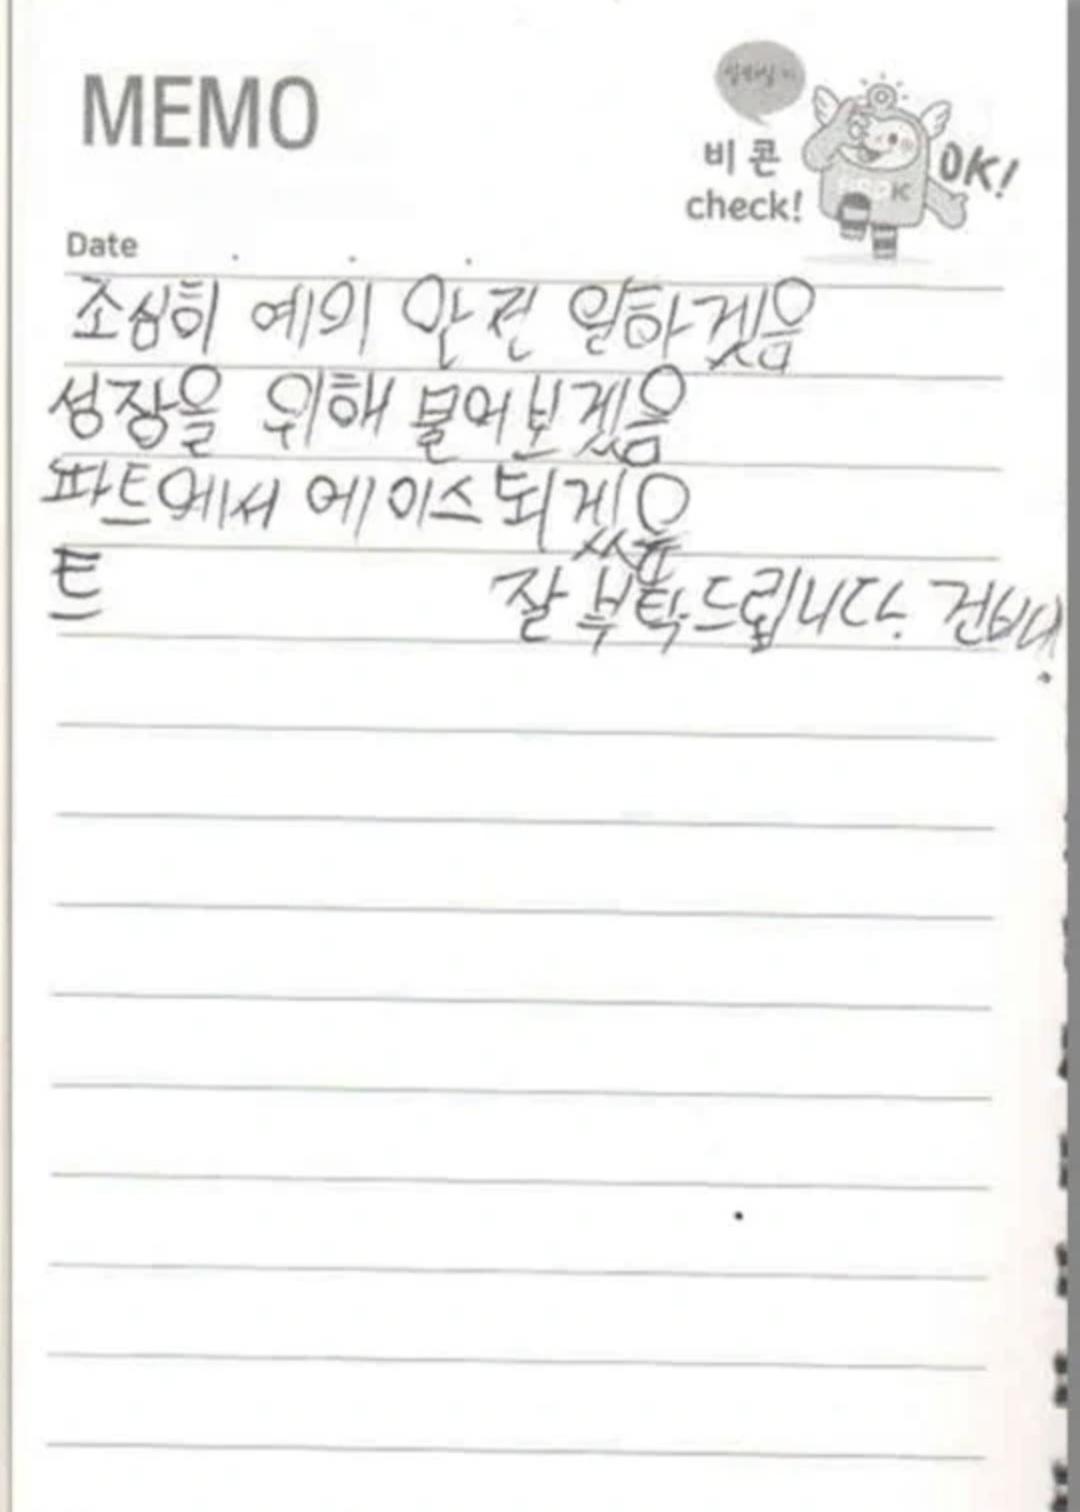 MEMO
비콘
check!
OK!
Date . . .
조심히 예의 안전 일하겠음
성장을 위해 물어보겠음
파트에서 에이스 되겠음
트
잘 부탁드립니다. 건배.